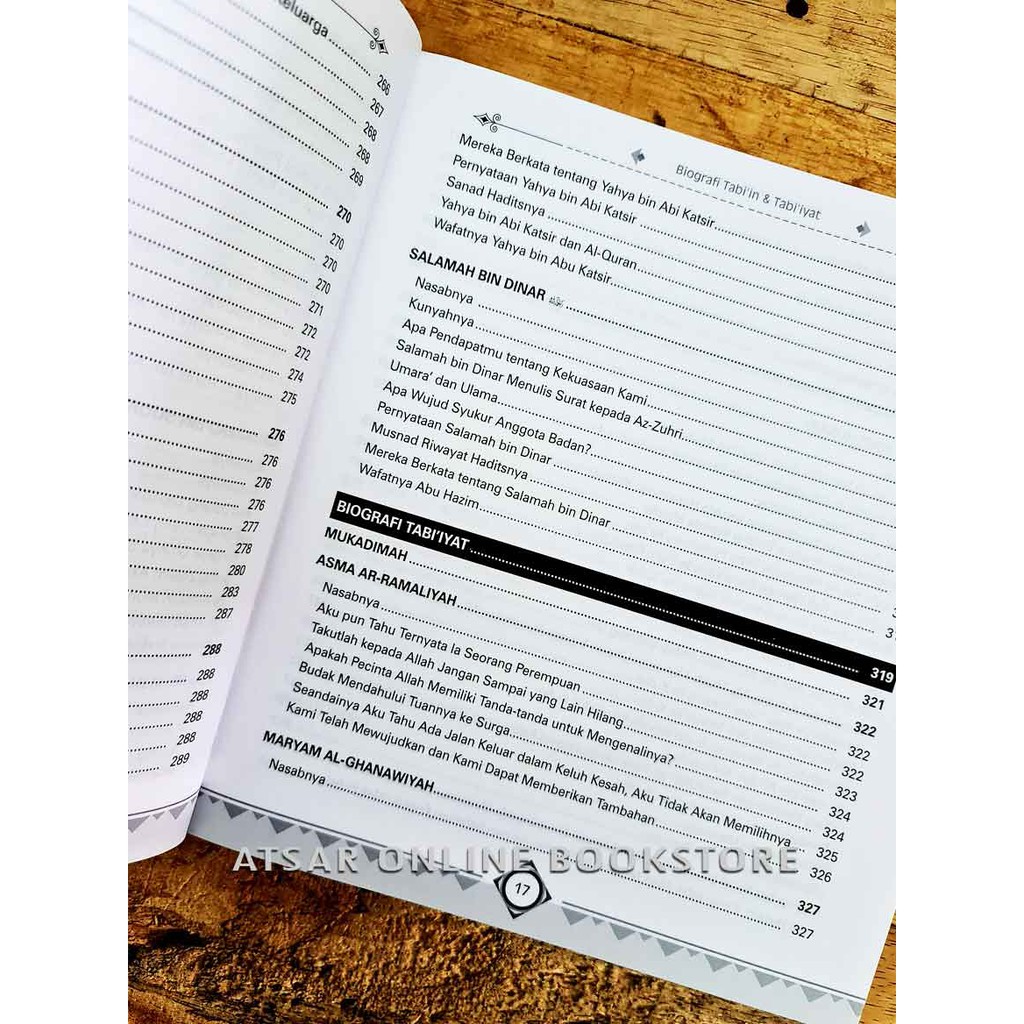 eluarga
266
267
268
268
269
270
270
270
270
271
272
272
274
275
276
276
276
276
277
278
280
283
287
288
288
288
288
288
289
Biografi Tabi'in & Tabi'iyat
Mereka Berkata tentang Yahya bin Abi Katsir
Pernyataan Yahya bin Abi Katsir
Sanad Haditsnya
Yahya bin Abi Katsir dan Al-Quran
Wafatnya Yahya bin Abu Katsir
SALAMAH BIN DINAR
Nasabnya
Kunyahnya
Apa Pendapatmu tentang Kekuasaan Kami
Salamah bin Dinar Menulis Surat kepada Az-Zuhri
Umara' dan Ulama
Apa Wujud Syukur Anggota Badan?
Pernyataan Salamah bin Dinar
Musnad Riwayat Haditsnya
Mereka Berkata tentang Salamah bin Dinar
Wafatnya Abu Hazim
BIOGRAFI TABI'IYAT 319
MUKADIMAH 321
ASMA AR-RAMALIYAH 322
Nasabnya 322
Aku pun Tahu Ternyata Ia Seorang Perempuan 322
Takutlah kepada Allah Jangan Sampai yang Lain Hilang 323
Apakah Pecinta Allah Memiliki Tanda-tanda untuk Mengenalinya? 324
Budak Mendahului Tuannya ke Surga 324
Seandainya Aku Tahu Ada Jalan Keluar dalam Keluh Kesah, Aku Tidak Akan Memilihnya 325
Kami Telah Mewujudkan dan Kami Dapat Memberikan Tambahan 326
MARYAM AL-GHANAWIYAH 327
Nasabnya 327
17
ATSAR ONLINE BOOKSTORE